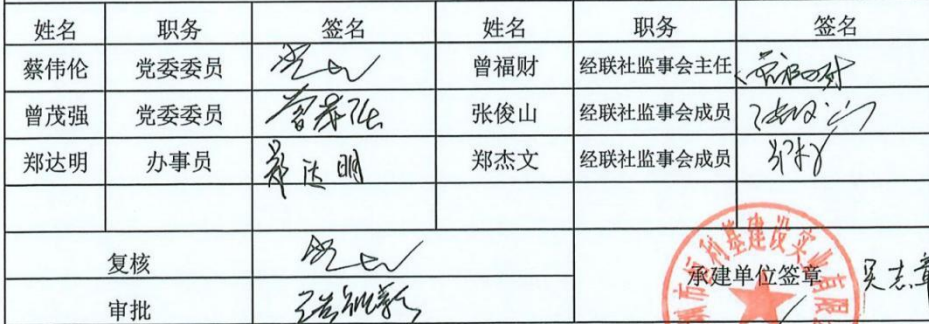 姓名 职务 签名 姓名 职务 签名
蔡伟伦 党委委员 曾福财 经联社监事会主任 曾福财
曾茂强 党委委员 曾茂强 张俊山 经联社监事会成员 张俊山
郑达明 办事员 郑达明 郑杰文 经联社监事会成员
复核 承建单位签章 吴志章
审批
利基建设实业有限